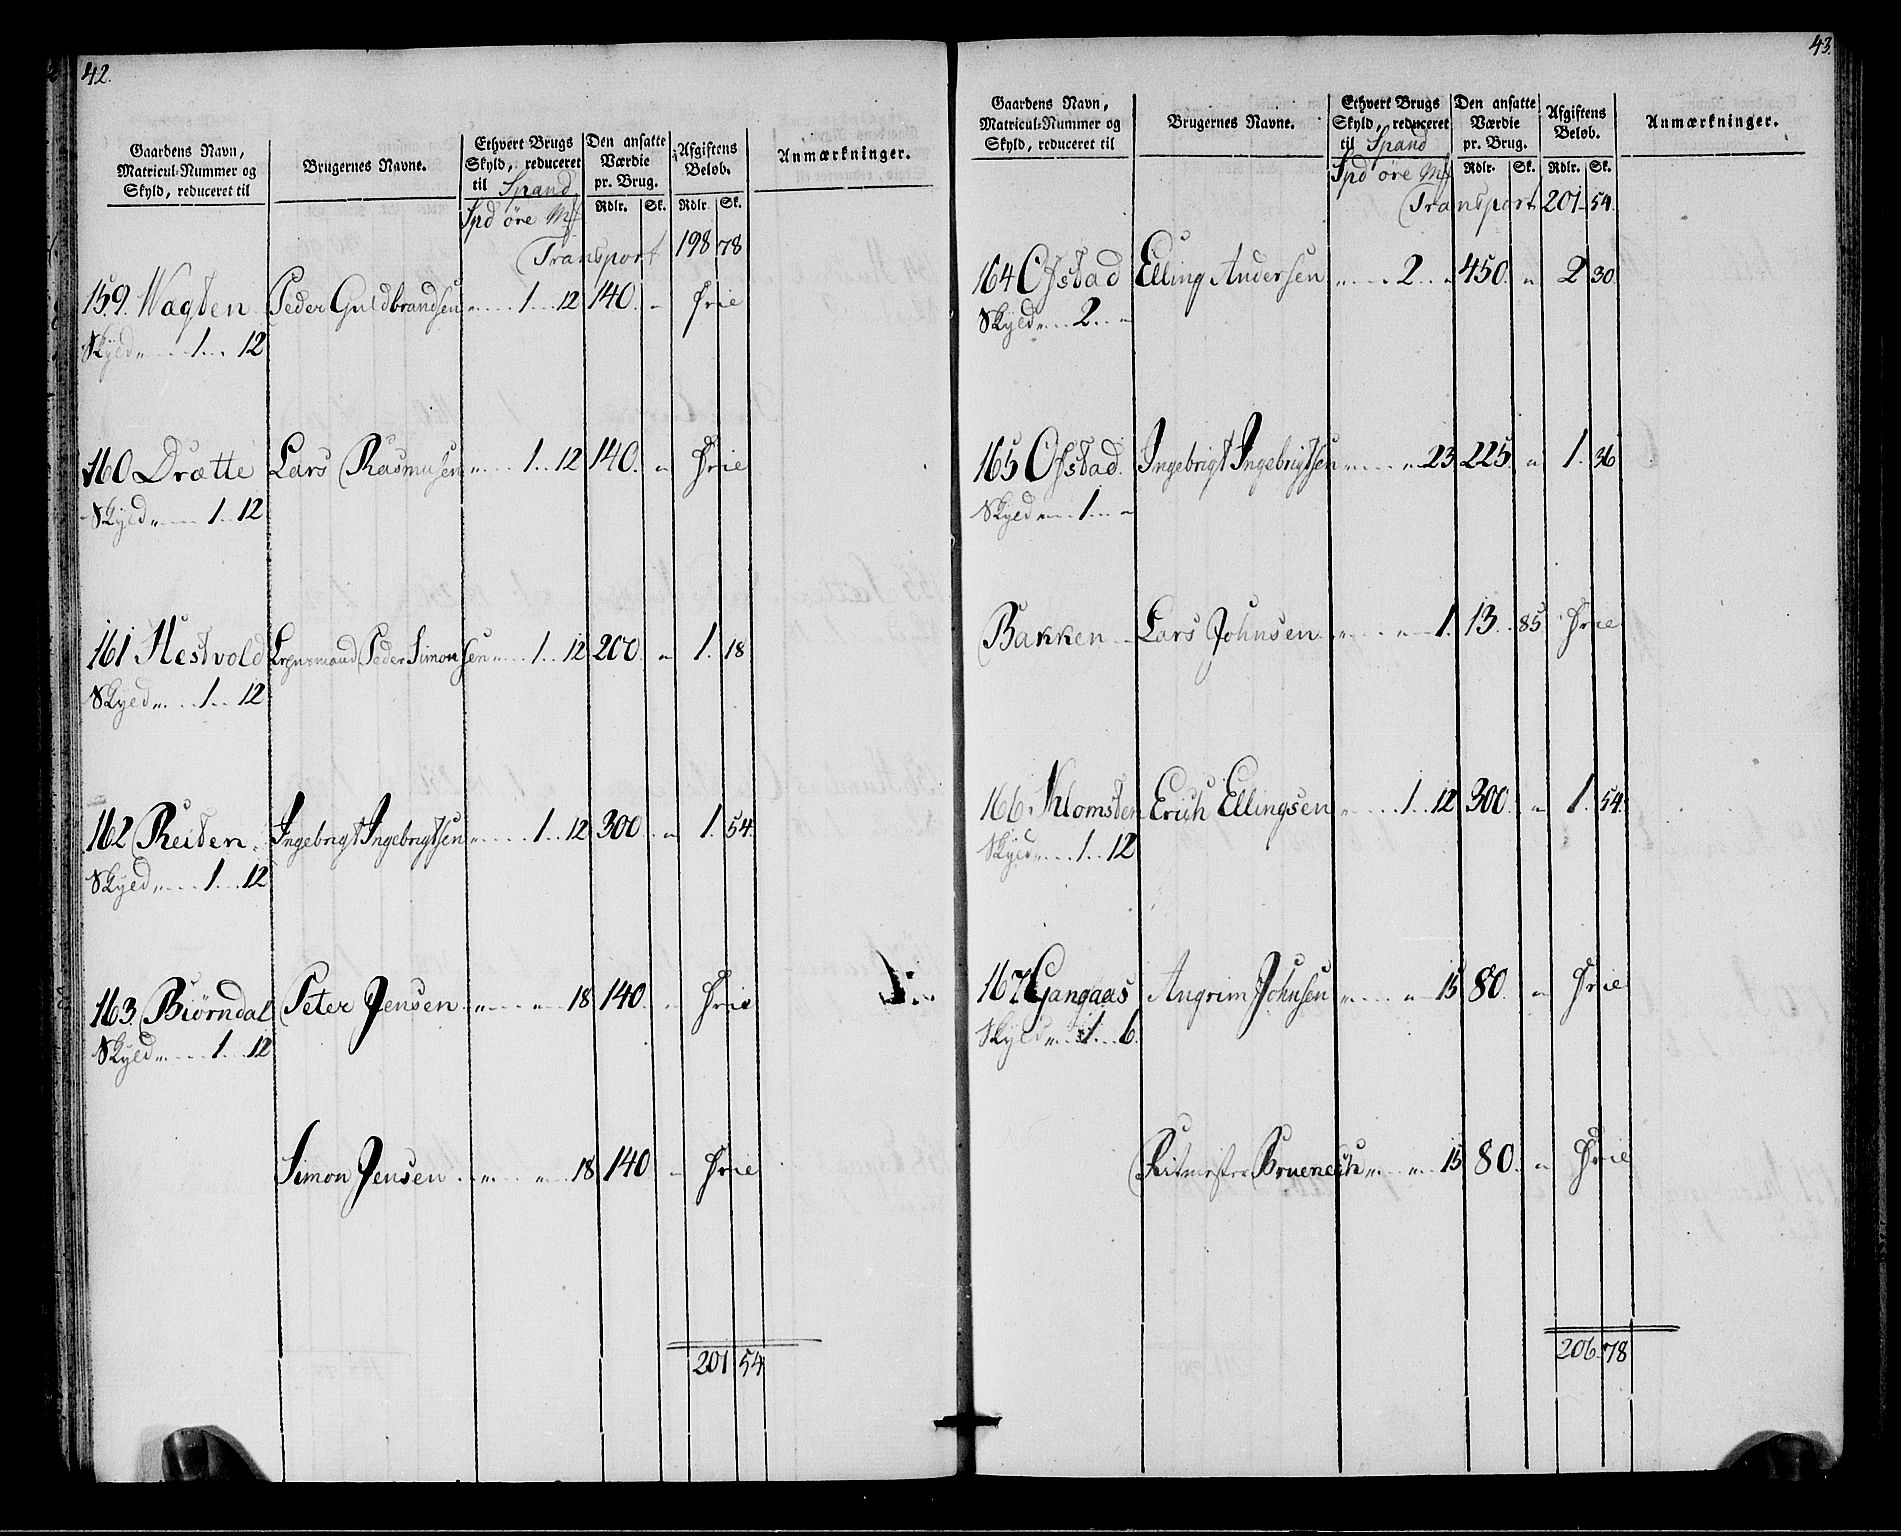 42.
Gaardens Navn, Matricul-Nummer og Skyld, reduceret til
Brugernes Navne.
Ethvert Brugs Skyld, reduceret til Spand
Spd øre Mk
Den ansatte Værdie pr. Brug.
Rdlr. Sk.
Afgiftens Beløb.
Rdlr. Sk.
Anmærkninger.
Transport 198 78
159. Wagten Peder Guldbrandsen " 1 12 140 " Frie
Skyld " 1 12
160 Drætte Lars Rasmusen " 1 12 140 " Frie
Skyld " 1 12
161 Hestvold Lensmand Peder Simonsen " 1 12 200 " 1 18
Skyld " 1 12
162 Reiten Ingebrigt Ingebrigtsen " 1 12 300 " 1 54
Skyld " 1 12
163. Biørndal Peter Jensen " " 18 140 " Frie
Skyld " 1 12
Simon Jensen " " 18 140 " Frie
201 54
43.
Gaardens Navn, Matricul-Nummer og Skyld, reduceret til
Brugernes Navne.
Ethvert Brugs Skyld, reduceret til Spand
Spd øre Mk
Den ansatte Værdie pr. Brug.
Rdlr. Sk.
Afgiftens Beløb.
Rdlr. Sk.
Anmærkninger.
Transport 201 54
164 Ofstad Elling Andersen " 2 " 450 " 2 30
Skyld " 2 "
165 Ofstad Ingebrigt Ingebrigtsen " " 23 225 " 1 36
Skyld " 1 "
Bakken Lars Johnsen " " 1 13 85 Frie
166 Klomsten Erich Ellingsen " 1 12 300 " 1 54
Skyld " 1 12
167 Gangaas Angrim Johnsen " " 15 80 " Frie
Skyld " 1 6
Ritmester Bruenech " " 15 80 " Frie
206 78